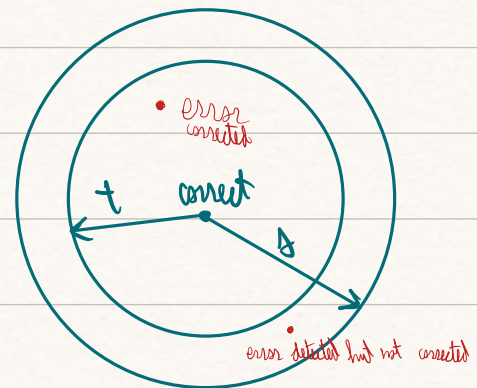 error
corrected
correct
t
s
error detected but not corrected